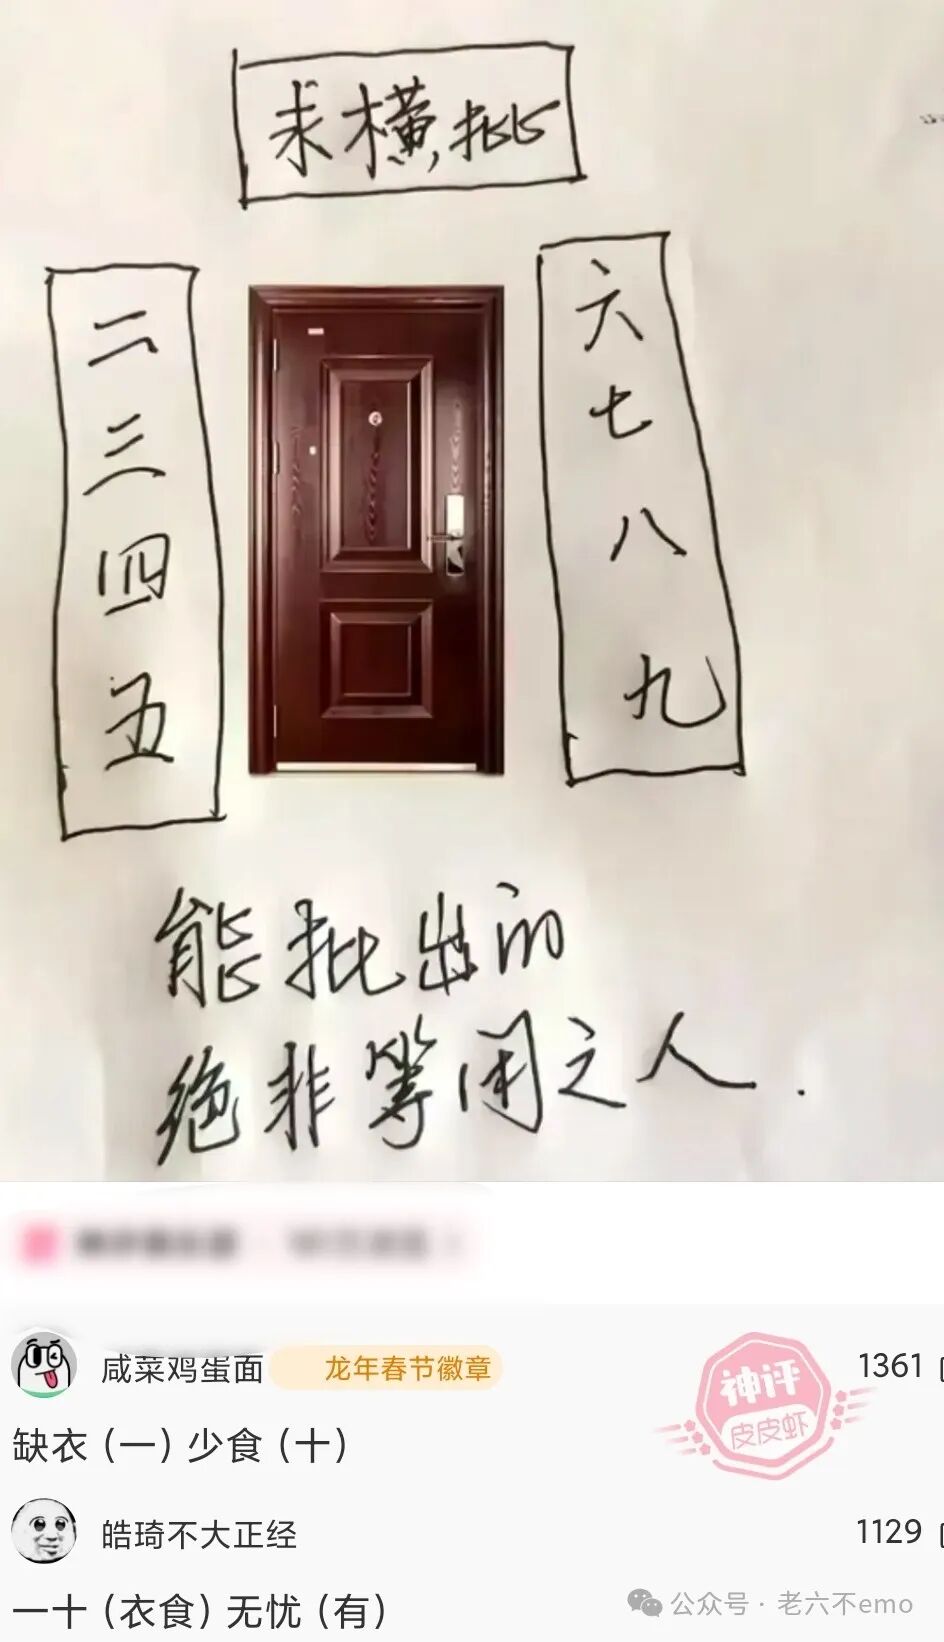 求横批
二三四五
六七八九
能批出的
绝非等闲之人.
咸菜鸡蛋面
龙年春节徽章
神评
皮皮虾
1361
缺衣（一）少食（十）
皓琦不大正经
1129
一十（衣食）无忧（有）
公众号·老六不emo